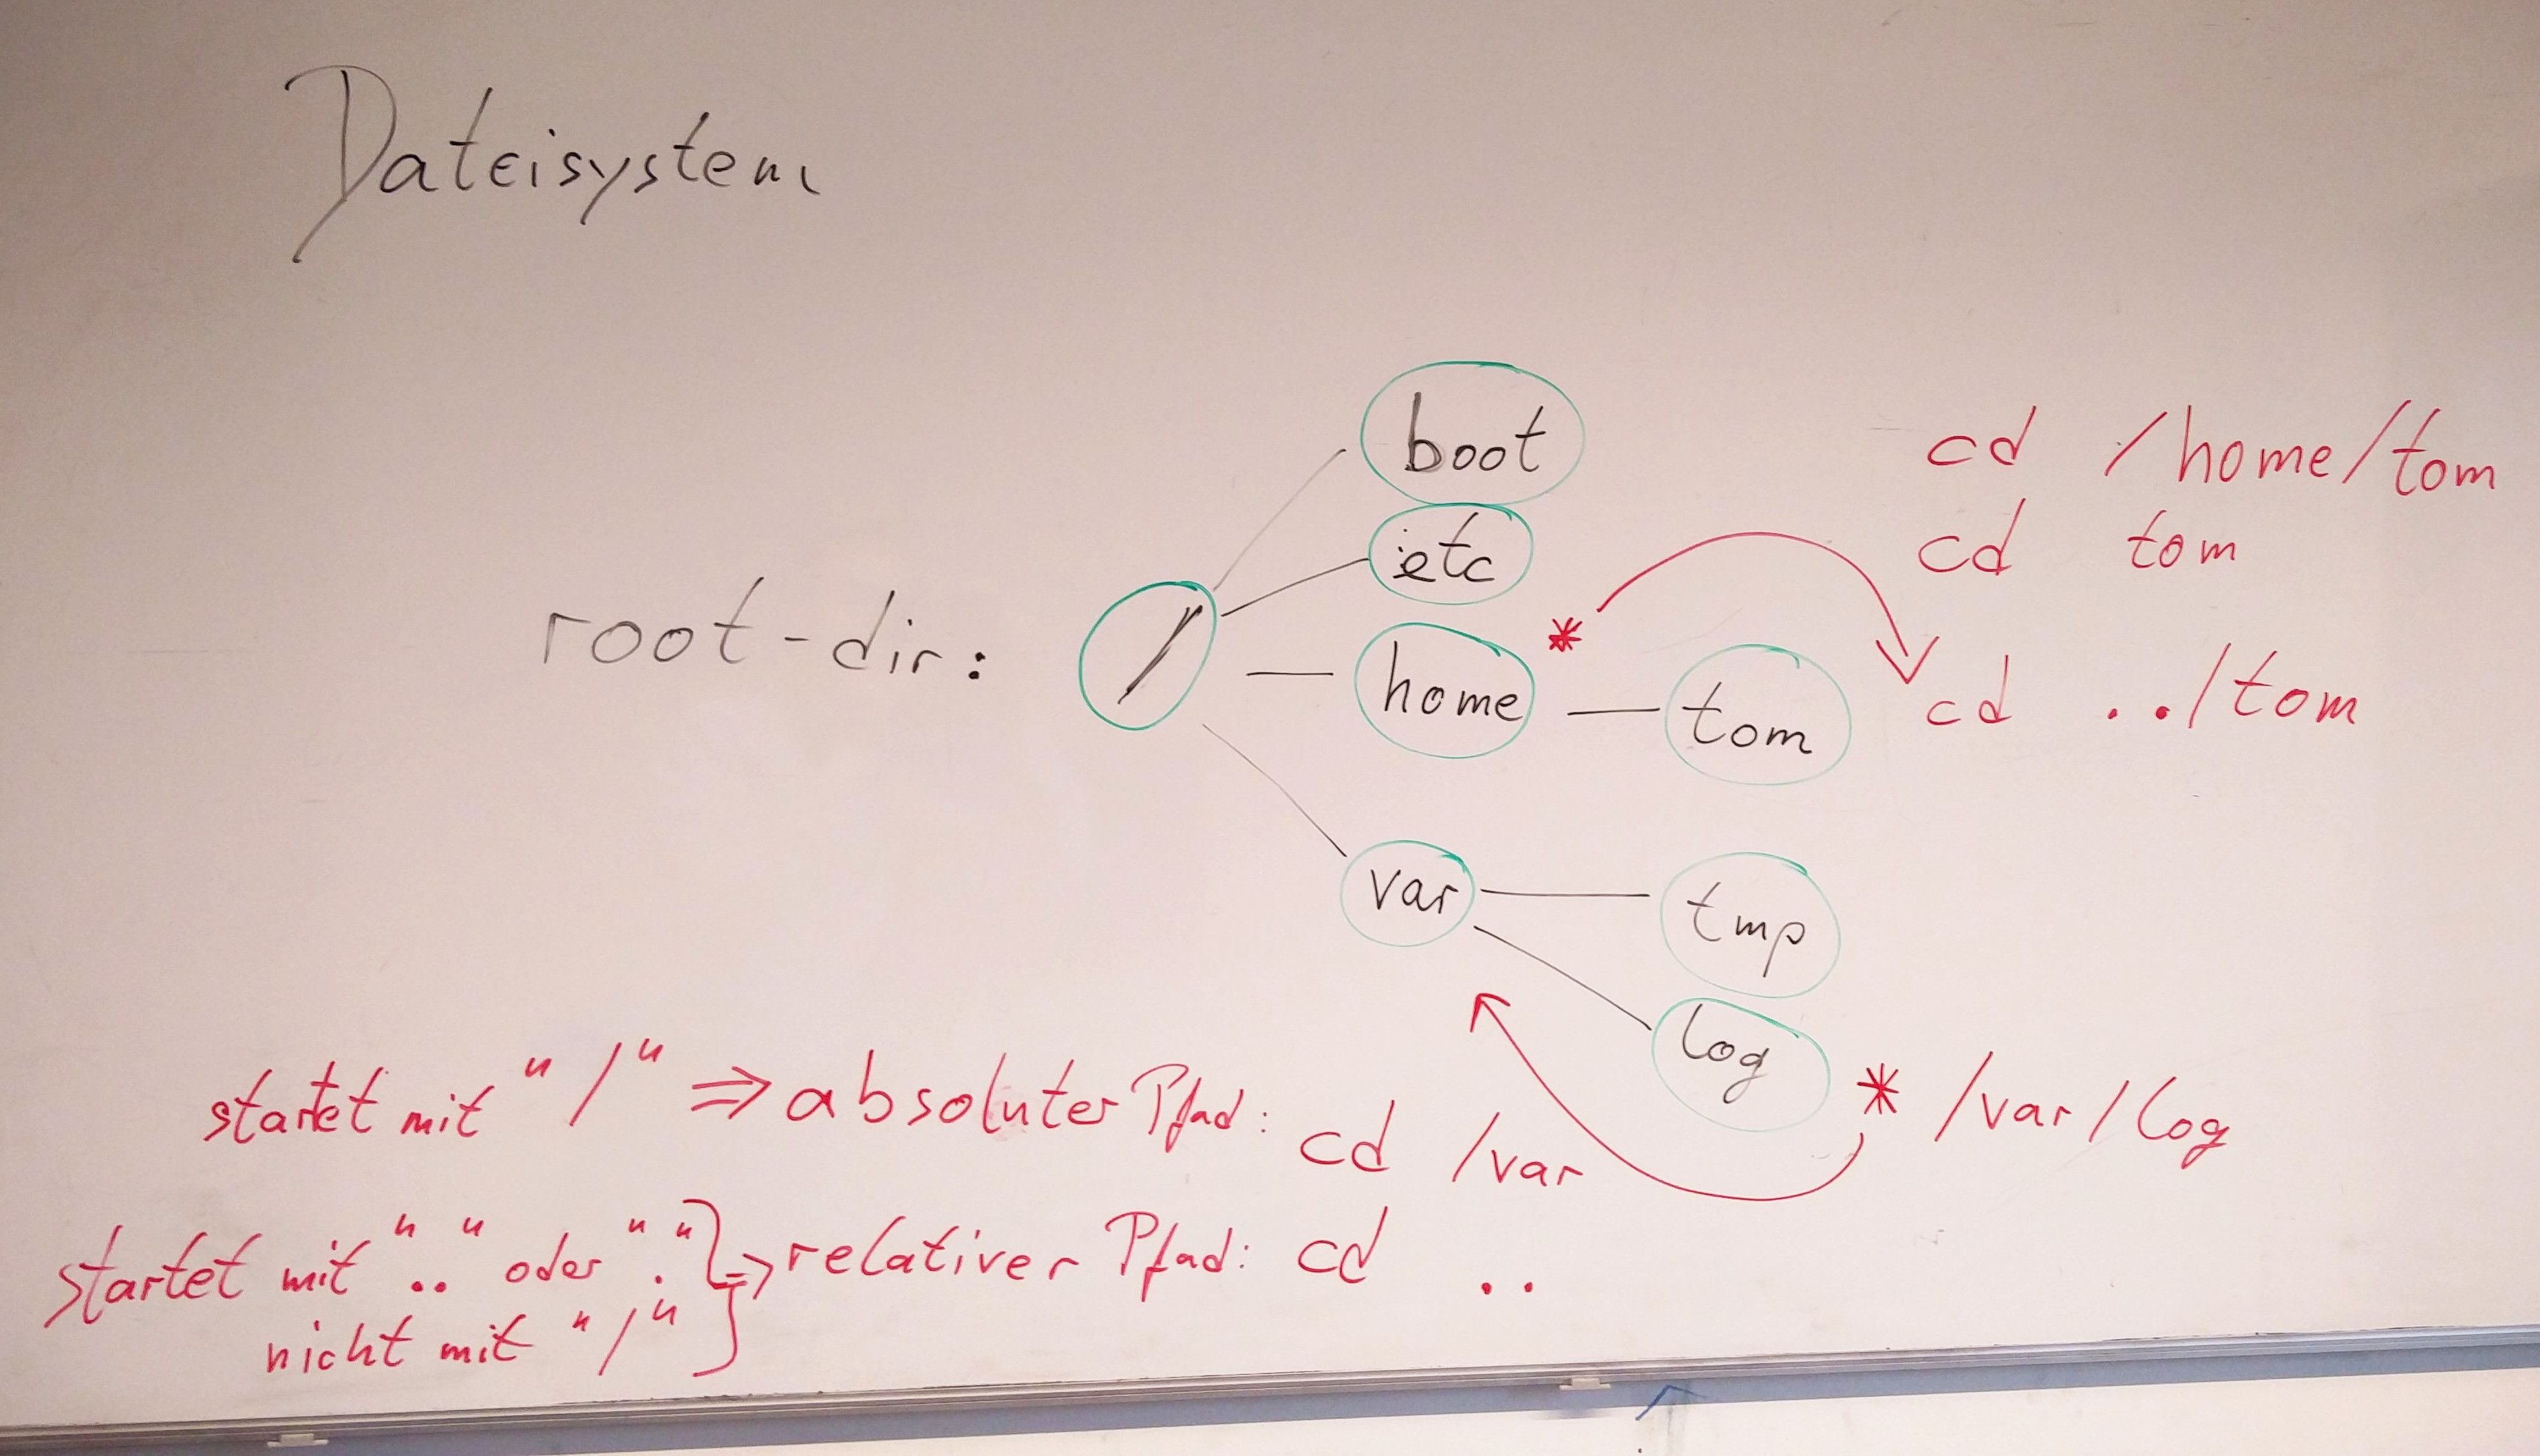 Dateisystem
boot
etc
root-dir: /
home *
tom
var
tmp
log
cd /home/tom
cd tom
cd ../tom
* /var/log
startet mit "/" => absoluter Pfad: cd /var
startet mit ".." oder "." => relativer Pfad: cd ..
nicht mit "/"